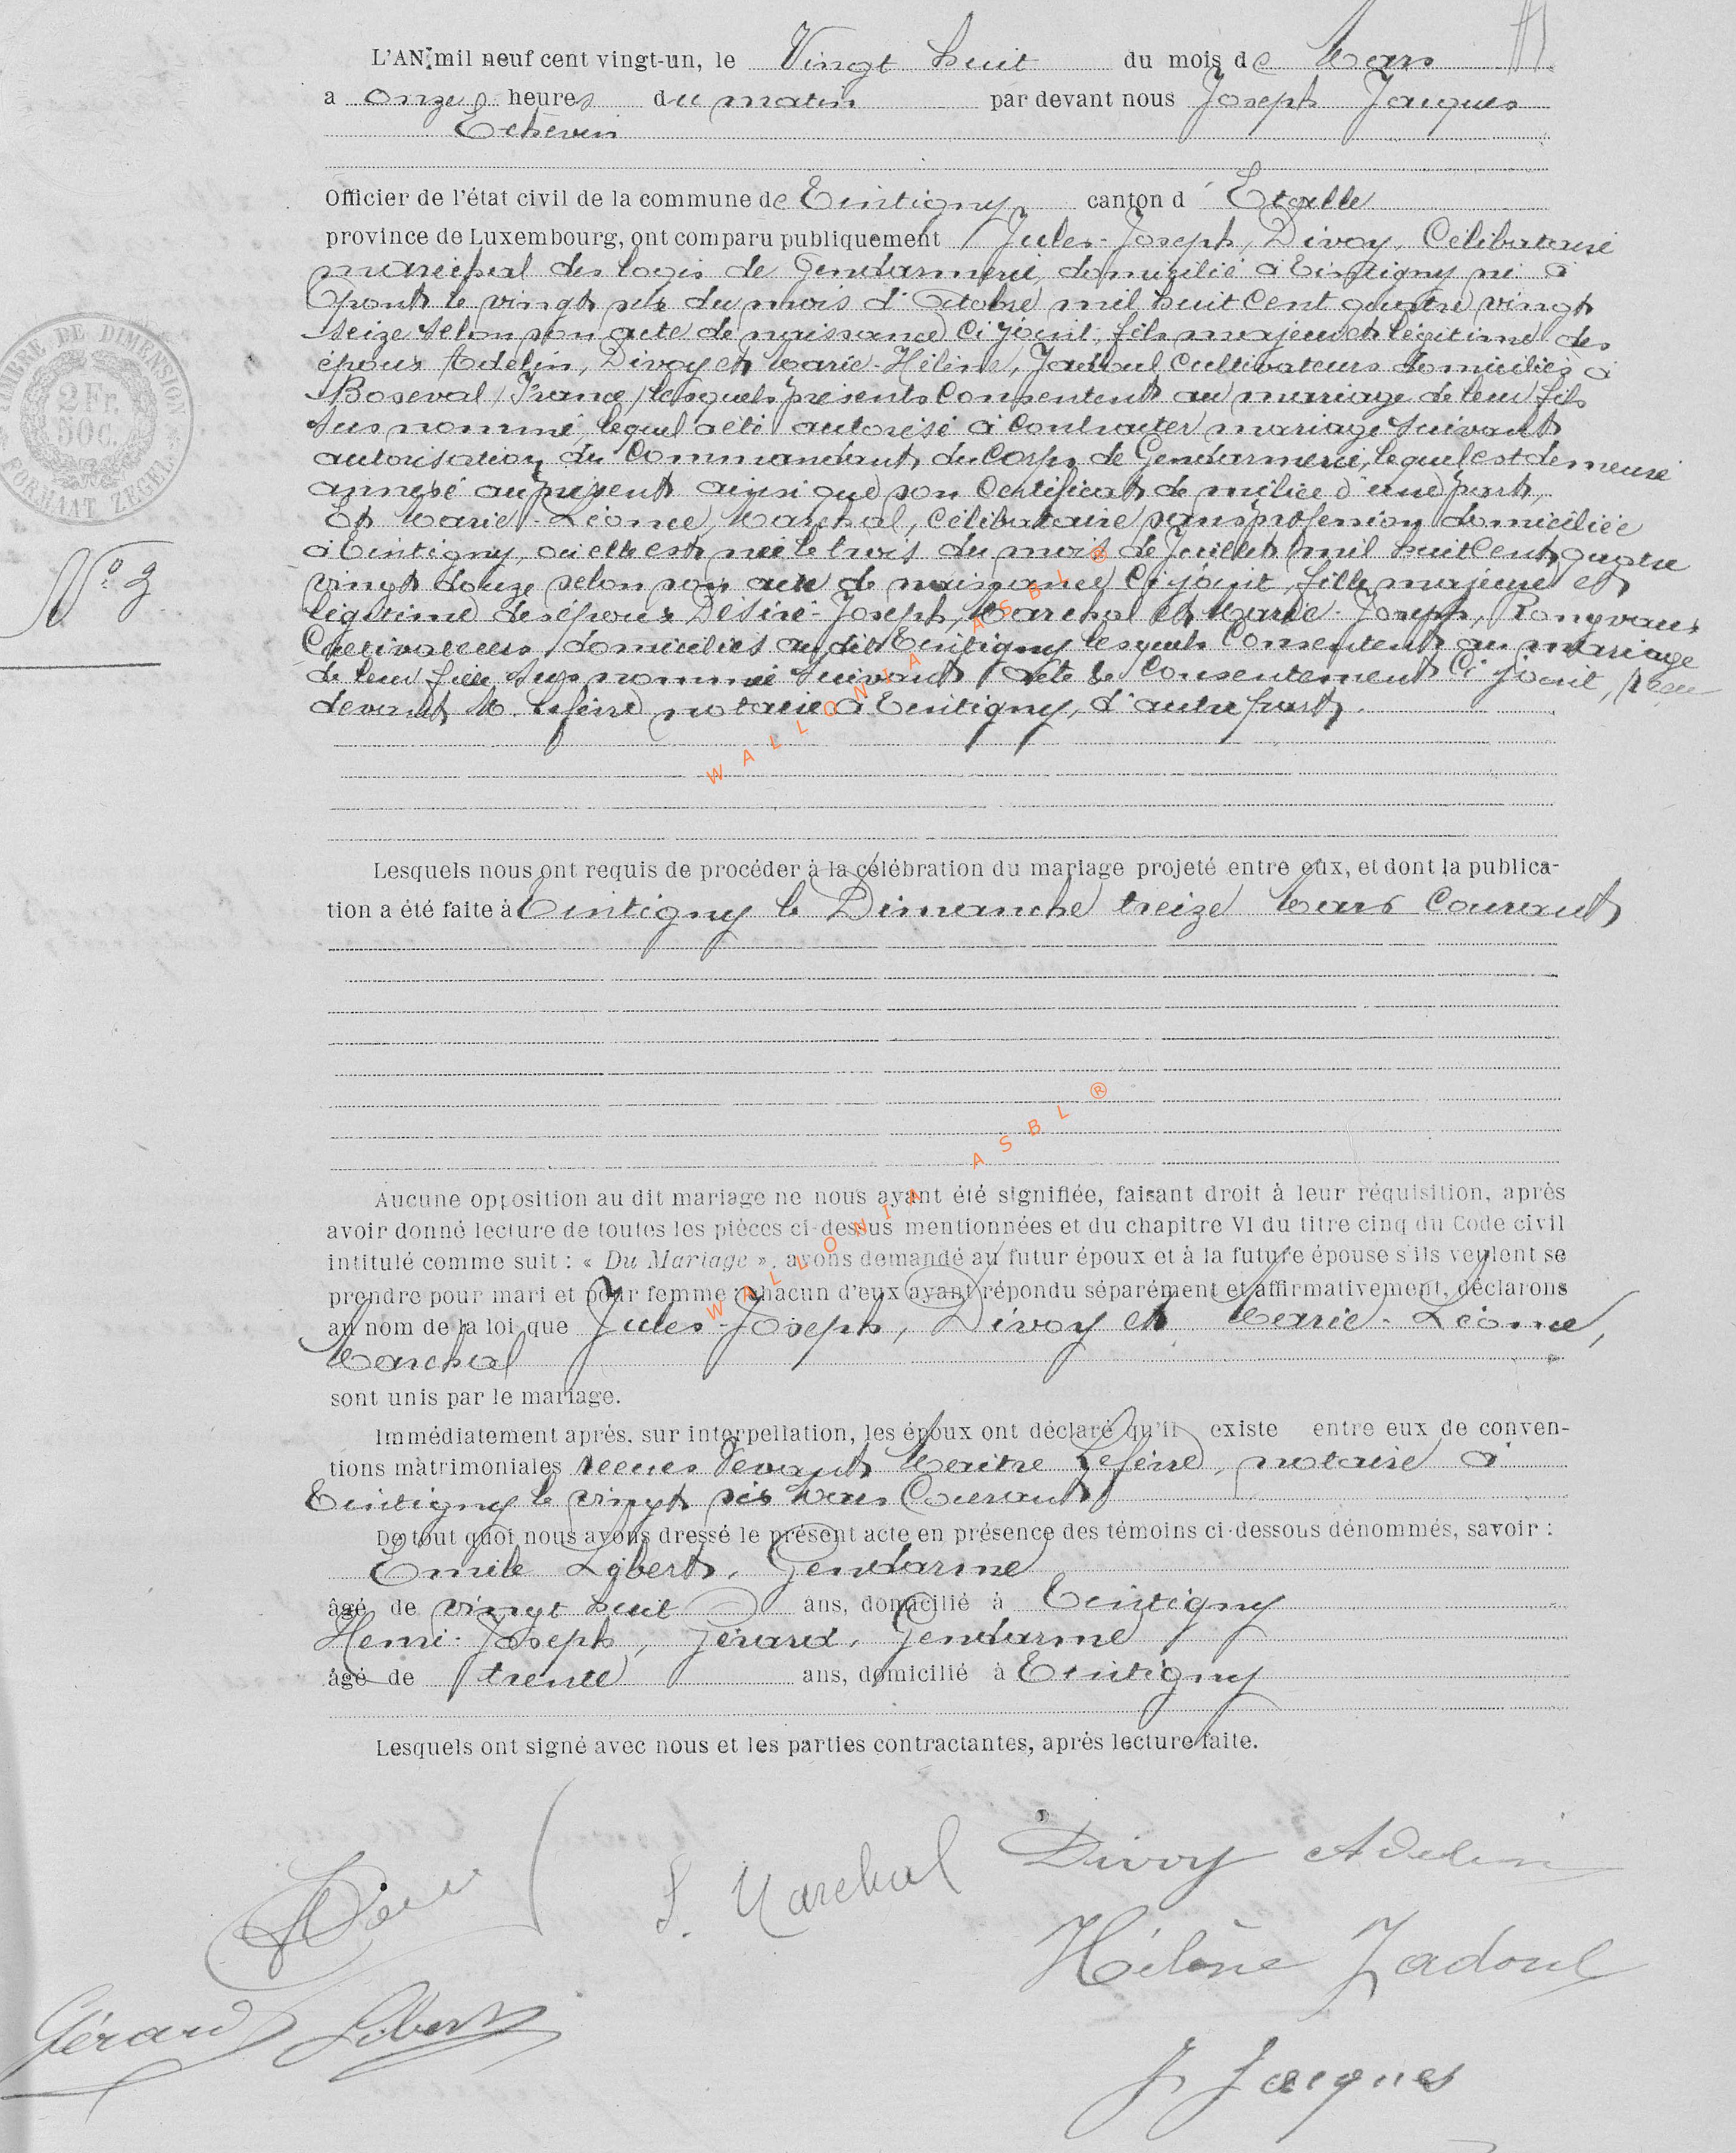 L'AN mil neuf cent vingt-un, le Vingt huit du mois de Mars
a onze heures du matin par devant nous Joseph Jacques
Echevin
Officier de l'état civil de la commune de Tintigny canton d'Etalle
province de Luxembourg, ont comparu publiquement Jules-Joseph, Divoy, Célibataire
marechal des logis de Gendarmerie, domicilié à Tintigny né à
le vingt six du mois d'Octobre mil huit Cent quatre vingt
seize selon son acte de naissance ci joint, fils majeur et légitime des
époux Adelin, Divoy et Marie-Hélène, Jadoul Cultivateurs domiciliés à
Boseval (France) lesquels présents Consentent au mariage de leur fils
sus nommé, lequel a été autorisé à Contracter mariage suivant
autorisation du Commandant du Corps de Gendarmerie, lequel est demeuré
annexé au présent ainsi que son Certificat de milice d'une part,
Et Marie-Léonie, Marchal, célibataire sans profession domiciliée
à Tintigny, où elle est née le trois du mois de Juillet mil huit Cent quatre
vingt douze selon son acte de naissance Ci joint, fille majeure et
légitime des époux Désiré-Joseph, Marchal et Marie-Joseph, Rongvaux
Cultivateurs domiciliés au dit Tintigny lesquels Consentent au mariage
de leur fille sus nommée suivant acte de Consentement Ci joint, reçu
devant M. Lefèvre notaire à Tintigny, d'autre part.
Lesquels nous ont requis de procéder à la célébration du mariage projeté entre eux, et dont la publica-
tion a été faite à Tintigny le Dimanche treize Mars Courant
Aucune opposition au dit mariage ne nous ayant été signifiée, faisant droit à leur réquisition, après
avoir donné lecture de toutes les pièces ci-dessus mentionnées et du chapitre VI du titre cinq du Code civil
intitulé comme suit : « Du Mariage », avons demandé au futur époux et à la future épouse s'ils veulent se
prendre pour mari et pour femme : chacun d'eux ayant répondu séparément et affirmativement, déclarons
au nom de la loi que Jules-Joseph, Divoy et Marie-Léonie,
Marchal
sont unis par le mariage.
Immédiatement après, sur interpellation, les époux ont déclaré qu'il existe entre eux de conven-
tions matrimoniales reçues devant Maitre Lefèvre, notaire à
Tintigny le vingt six Mars Courant
De tout quoi nous avons dressé le présent acte en présence des témoins ci-dessous dénommés, savoir :
Emile Libert, Gendarme
âgé de vingt huit ans, domicilié à Tintigny
Henri-Joseph, Gérard, Gendarme
âgé de trente ans, domicilié à Tintigny
Lesquels ont signé avec nous et les parties contractantes, après lecture faite.
L. Marchal Divoy Adelin
Hélène Jadoul
Gérard Libert
J Jacques
TIMBRE DE DIMENSION
2 Fr.
50C.
FORMAAT ZEGEL
N° 3
WALLONIA ASBL ®
WALLONIA ASBL ®